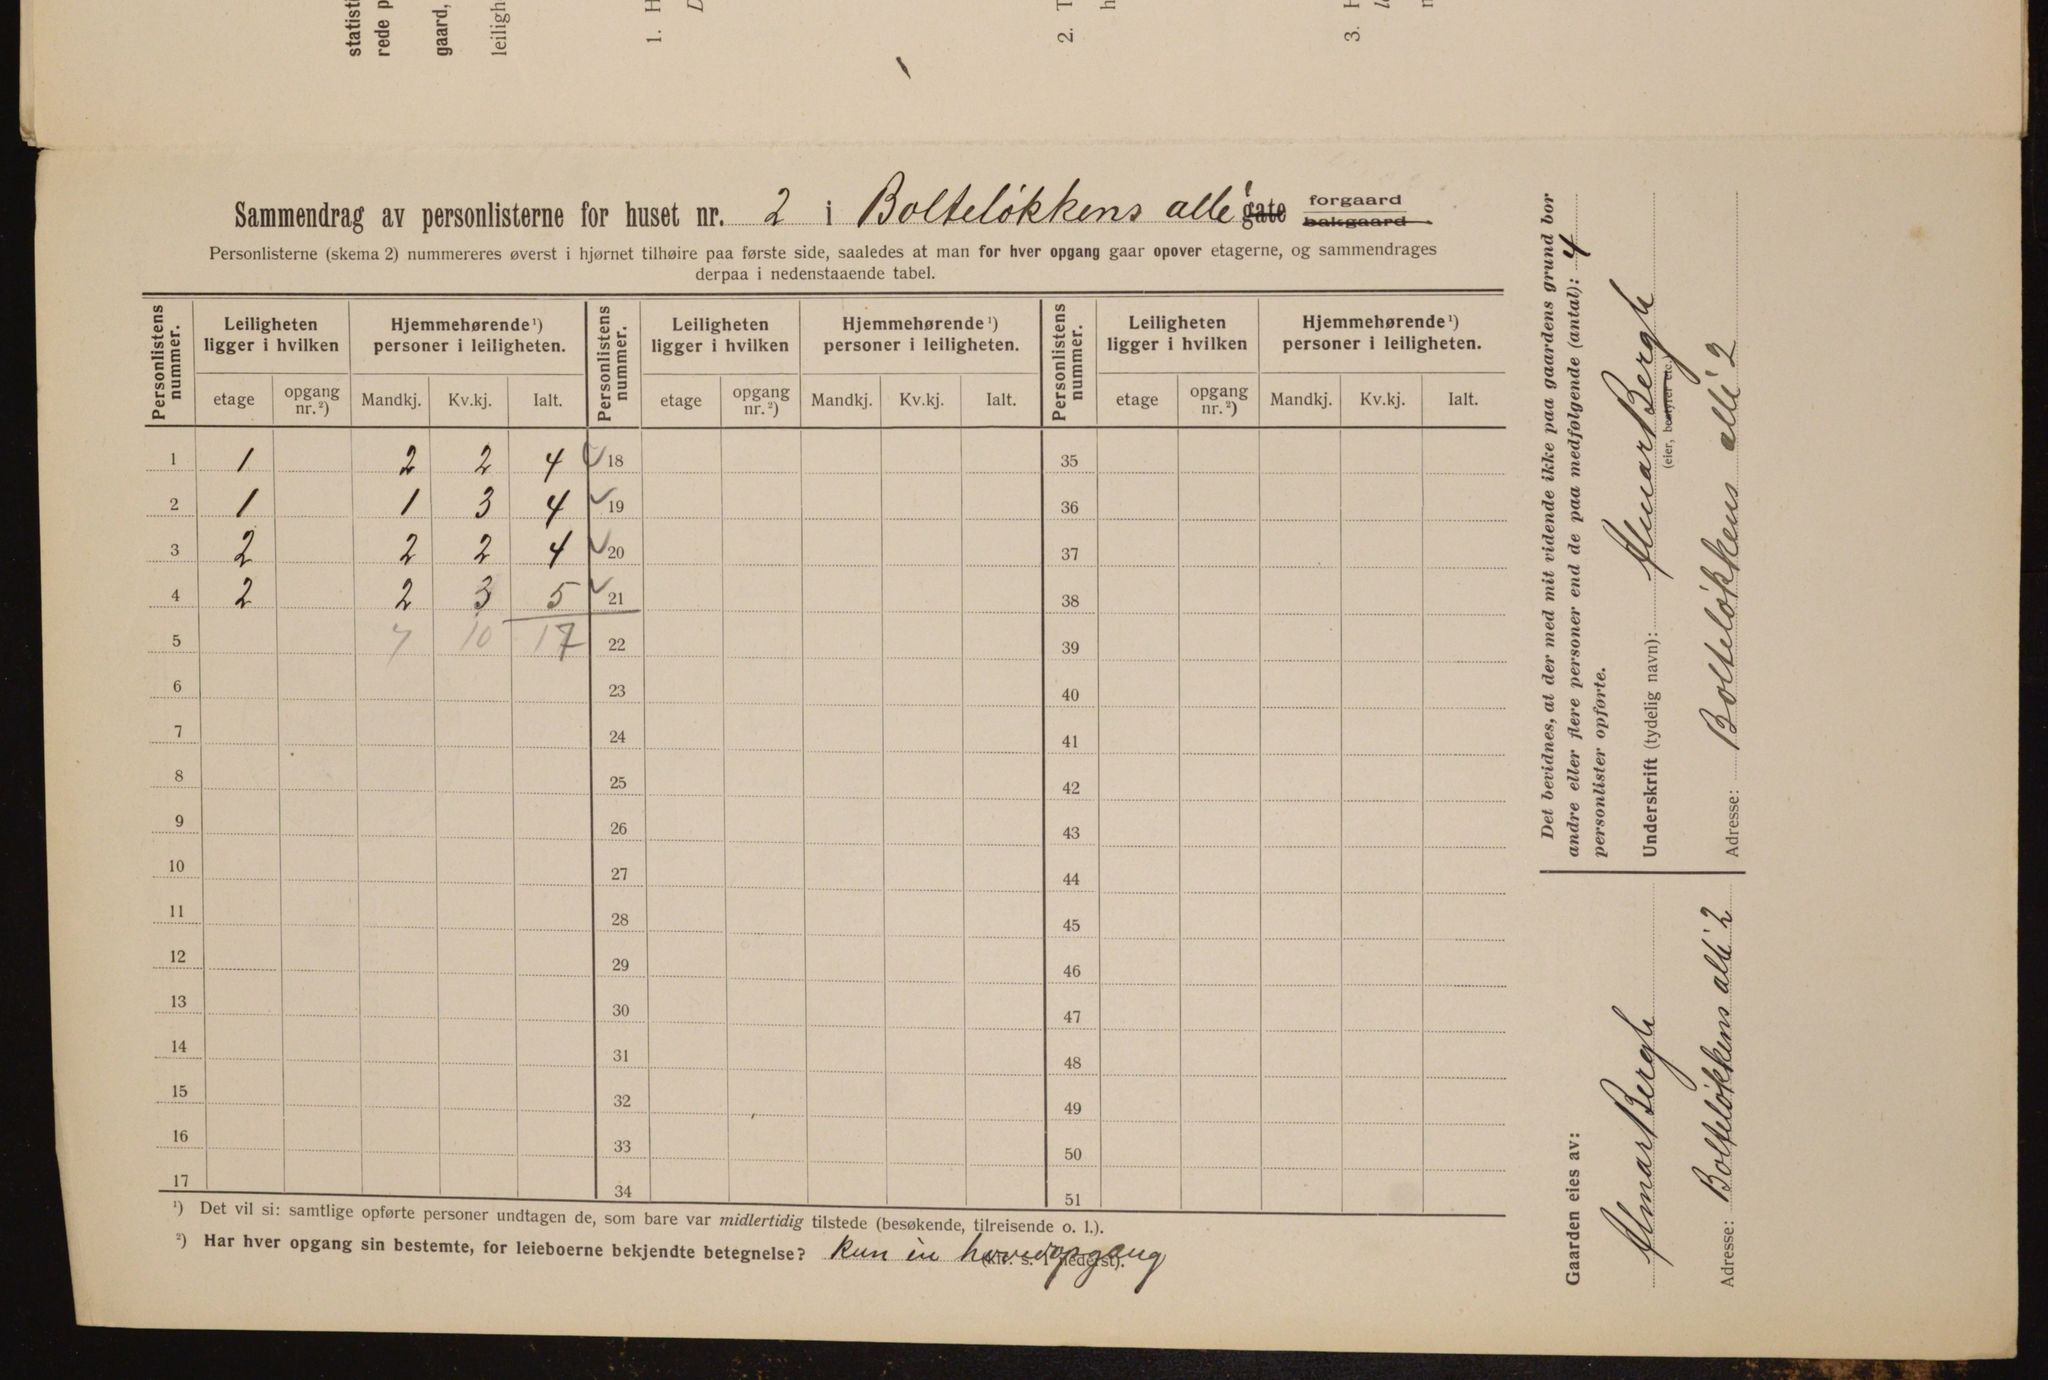 statisti
rede p
gaard,
leiligh
1. H
D
2. T
h
3. H
Sammendrag av personlisterne for huset nr. 2 i Bolteløkkens allé gate forgaard bakgaard
Personlisterne (skema 2) nummereres øverst i hjørnet tilhøire paa første side, saaledes at man for hver opgang gaar opover etagerne, og sammendrages
derpaa i nedenstaaende tabel.
Personlistens nummer. Leiligheten ligger i hvilken Hjemmehørende ¹) personer i leiligheten. Personlistens nummer. Leiligheten ligger i hvilken Hjemmehørende ¹) personer i leiligheten. Personlistens nummer. Leiligheten ligger i hvilken Hjemmehørende ¹) personer i leiligheten.
etage opgang nr. ²) Mandkj. Kv.kj. Ialt. etage opgang nr. ²) Mandkj. Kv.kj. Ialt. etage opgang nr. ²) Mandkj. Kv.kj. Ialt.
1 1 2 2 4 18 35
2 1 1 3 4 19 36
3 2 2 2 4 20 37
4 2 2 3 5 21 38
5 7 10 17 22 39
6 23 40
7 24 41
8 25 42
9 26 43
10 27 44
11 28 45
12 29 46
13 30 47
14 31 48
15 32 49
16 33 50
17 34 51
¹) Det vil si: samtlige opførte personer undtagen de, som bare var midlertidig tilstede (besøkende, tilreisende o. l.).
²) Har hver opgang sin bestemte, for leieboerne bekjendte betegnelse? Kun én hovedopgang
(kfr. s. 1 nederst).
Det bevidnes, at der med mit vidende ikke paa gaardens grund bor
andre eller flere personer end de paa medfølgende (antal): 4
personlister opførte.
Underskrift (tydelig navn): Almar Bergh
(eier, bestyrer etc.)
Adresse: Bolteløkkens allé 2
Gaarden eies av:
Almar Bergh
Adresse: Bolteløkkens allé 2